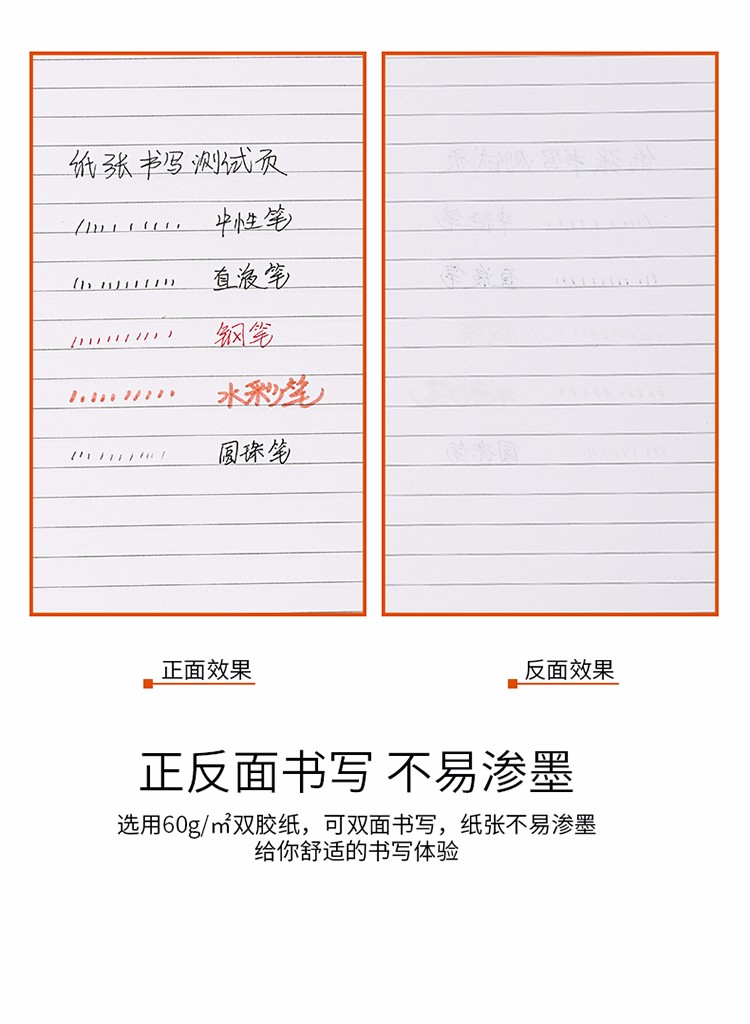 纸张书写测试页
中性笔
直液笔
钢笔
水彩笔
圆珠笔
正面效果
反面效果
正反面书写 不易渗墨
选用60g/㎡双胶纸，可双面书写，纸张不易渗墨
给你舒适的书写体验